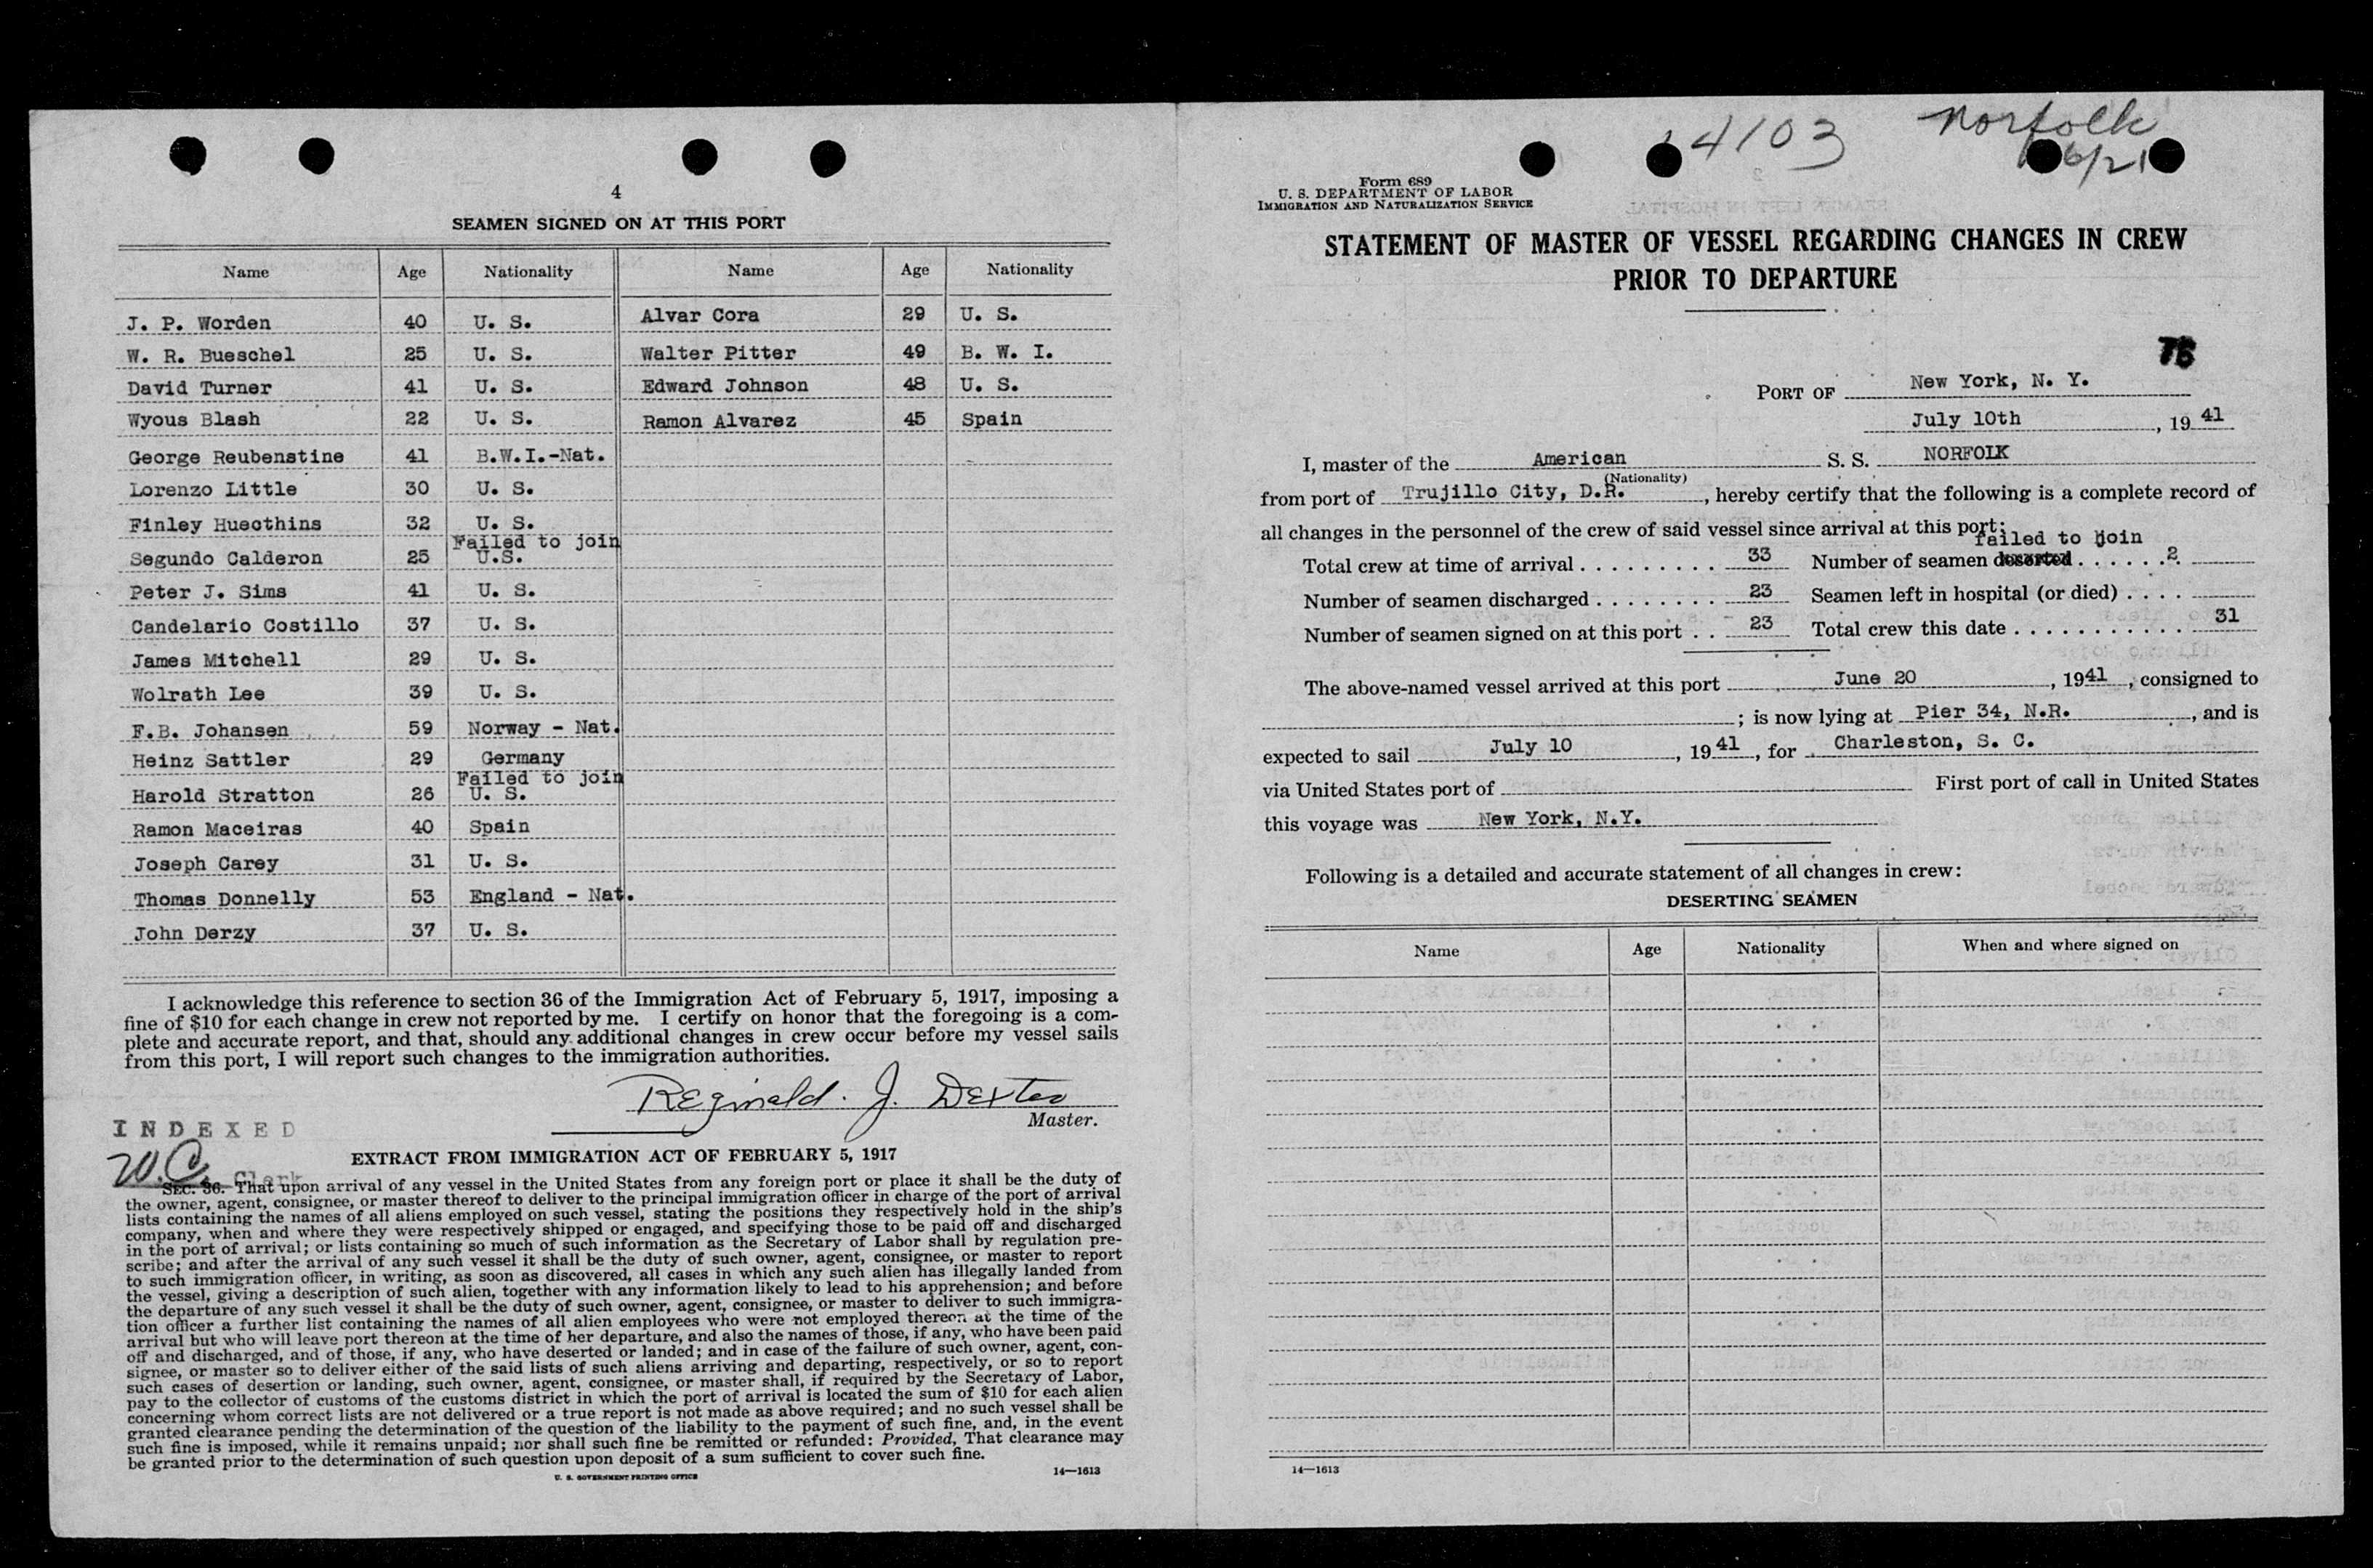 4
SEAMEN SIGNED ON AT THIS PORT
Name Age Nationality Name Age Nationality
J. P. Worden 40 U. S. Alvar Cora 29 U. S.
W. R. Bueschel 25 U. S. Walter Pitter 49 B. W. I.
David Turner 41 U. S. Edward Johnson 48 U. S.
Wyous Blash 22 U. S. Ramon Alvarez 45 Spain
George Reubenstine 41 B.W.I.-Nat.
Lorenzo Little 30 U. S.
Finley Huecthins 32 U. S.
Failed to join
Segundo Calderon 25 U.S.
Peter J. Sims 41 U. S.
Candelario Costillo 37 U. S.
James Mitchell 29 U. S.
Wolrath Lee 39 U. S.
F.B. Johansen 59 Norway - Nat.
Heinz Sattler 29 Germany
Failed to join
Harold Stratton 26 U. S.
Ramon Maceiras 40 Spain
Joseph Carey 31 U. S.
Thomas Donnelly 53 England - Nat.
John Derzy 37 U. S.
I acknowledge this reference to section 36 of the Immigration Act of February 5, 1917, imposing a
fine of $10 for each change in crew not reported by me. I certify on honor that the foregoing is a com-
plete and accurate report, and that, should any additional changes in crew occur before my vessel sails
from this port, I will report such changes to the immigration authorities.
Reginald. J. Dexter
Master.
INDEXED
W.C. Clerk
EXTRACT FROM IMMIGRATION ACT OF FEBRUARY 5, 1917
SEC. 36. That upon arrival of any vessel in the United States from any foreign port or place it shall be the duty of
the owner, agent, consignee, or master thereof to deliver to the principal immigration officer in charge of the port of arrival
lists containing the names of all aliens employed on such vessel, stating the positions they respectively hold in the ship's
company, when and where they were respectively shipped or engaged, and specifying those to be paid off and discharged
in the port of arrival; or lists containing so much of such information as the Secretary of Labor shall by regulation pre-
scribe; and after the arrival of any such vessel it shall be the duty of such owner, agent, consignee, or master to report
to such immigration officer, in writing, as soon as discovered, all cases in which any such alien has illegally landed from
the vessel, giving a description of such alien, together with any information likely to lead to his apprehension; and before
the departure of any such vessel it shall be the duty of such owner, agent, consignee, or master to deliver to such immigra-
tion officer a further list containing the names of all alien employees who were not employed thereon at the time of the
arrival but who will leave port thereon at the time of her departure, and also the names of those, if any, who have been paid
off and discharged, and of those, if any, who have deserted or landed; and in case of the failure of such owner, agent, con-
signee, or master so to deliver either of the said lists of such aliens arriving and departing, respectively, or so to report
such cases of desertion or landing, such owner, agent, consignee, or master shall, if required by the Secretary of Labor,
pay to the collector of customs of the customs district in which the port of arrival is located the sum of $10 for each alien
concerning whom correct lists are not delivered or a true report is not made as above required; and no such vessel shall be
granted clearance pending the determination of the question of the liability to the payment of such fine, and, in the event
such fine is imposed, while it remains unpaid; nor shall such fine be remitted or refunded: Provided, That clearance may
be granted prior to the determination of such question upon deposit of a sum sufficient to cover such fine.
U. S. GOVERNMENT PRINTING OFFICE 14—1613
4103 Norfolk
6/21
Form 689
U. S. DEPARTMENT OF LABOR
IMMIGRATION AND NATURALIZATION SERVICE
STATEMENT OF MASTER OF VESSEL REGARDING CHANGES IN CREW
PRIOR TO DEPARTURE
PORT OF New York, N. Y.
July 10th, 19 41
I, master of the American S. S. NORFOLK
(Nationality)
from port of Trujillo City, D.R., hereby certify that the following is a complete record of
all changes in the personnel of the crew of said vessel since arrival at this port:
failed to join
Total crew at time of arrival . . . . . . . . . 33 Number of seamen deserted . . . . . . 2
Number of seamen discharged . . . . . . . . 23 Seamen left in hospital (or died) . . . .
Number of seamen signed on at this port . . 23 Total crew this date . . . . . . . . . . . . 31
The above-named vessel arrived at this port June 20, 1941, consigned to
; is now lying at Pier 34, N.R., and is
expected to sail July 10, 19 41, for Charleston, S. C.
via United States port of First port of call in United States
this voyage was New York, N.Y.
Following is a detailed and accurate statement of all changes in crew:
DESERTING SEAMEN
Name Age Nationality When and where signed on
14—1613